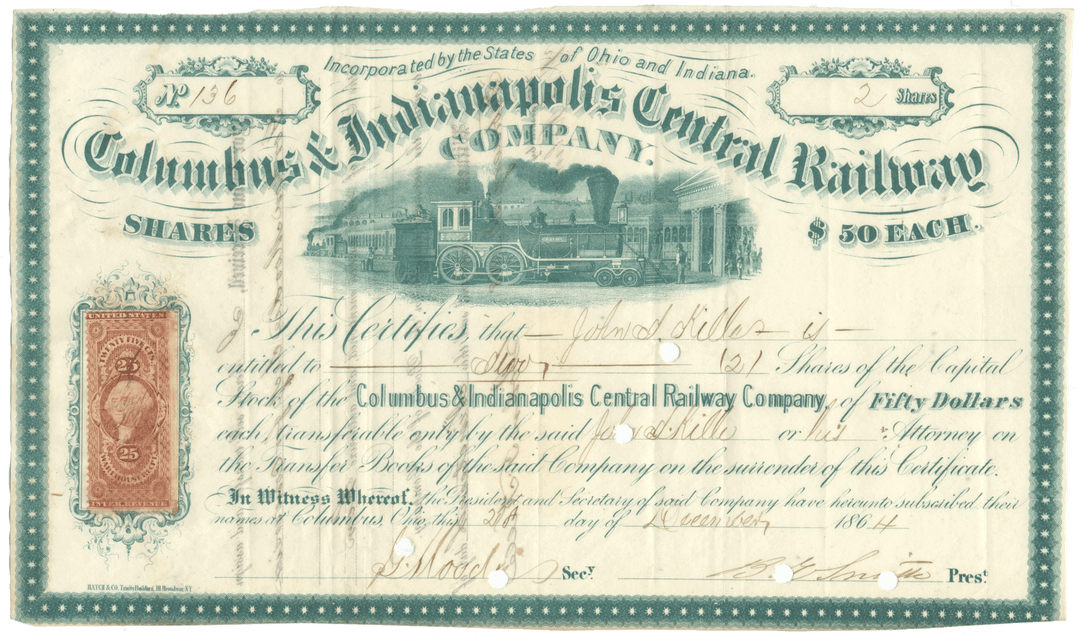 Incorporated by the States of Ohio and Indiana.
No 136
2 Shares
Columbus & Indianapolis Central Railway
COMPANY.
SHARES
$ 50 EACH.
UNITED STATES
TWENTY FIVE CTS.
25
25
INTER. REVENUE
This Certifies, that — John S. Killer — is —
entitled to Two, (2) Shares of the Capital
Stock of the Columbus & Indianapolis Central Railway Company, of Fifty Dollars
each, transferable only by the said John S. Kille or his Attorney on
the Transfer Books of the said Company on the surrender of this Certificate.
In Witness Whereof, the President and Secretary of said Company have hereunto subscribed their
names at Columbus, Ohio, this day of December, 1864
Secy.
B. E. Smith Prest.
HATCH & CO. Trinity Building, 111 Broadway, N.Y.